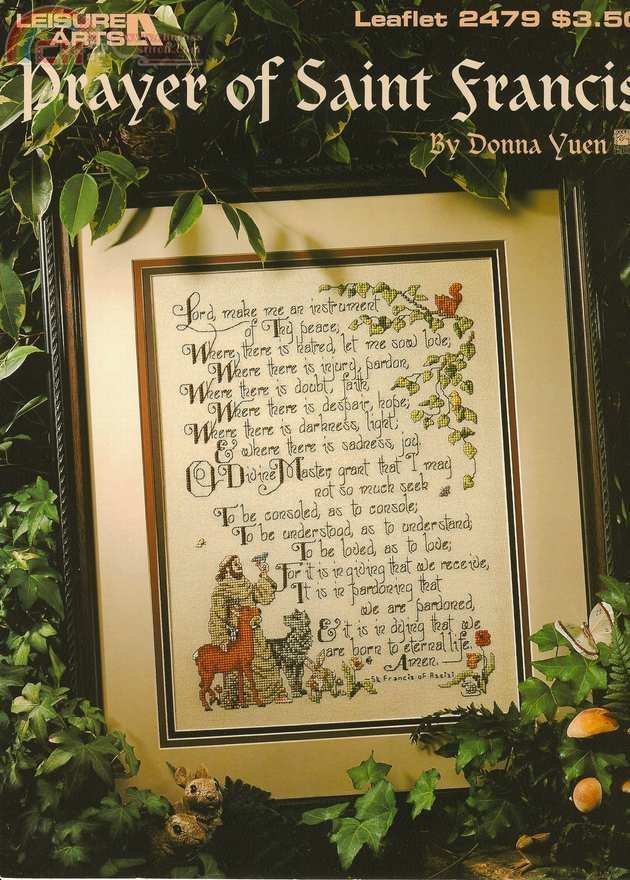 LEISURE
ARTS
Leaflet 2479 $3.50
Prayer of Saint Francis
By Donna Yuen
Lord, make me an instrument
of Thy peace;
Where there is hatred, let me sow love;
Where there is injury, pardon,
Where there is doubt, faith,
Where there is despair, hope;
Where there is darkness, light;
& where there is sadness, joy.
O Divine Master grant that I may
not so much seek
To be consoled, as to console;
To be understood, as to understand;
To be loved, as to love;
For it is in giving that we receive,
It is in pardoning that
we are pardoned,
& it is in dying that we
are born to eternal life.
Amen.
-St Francis of Assisi